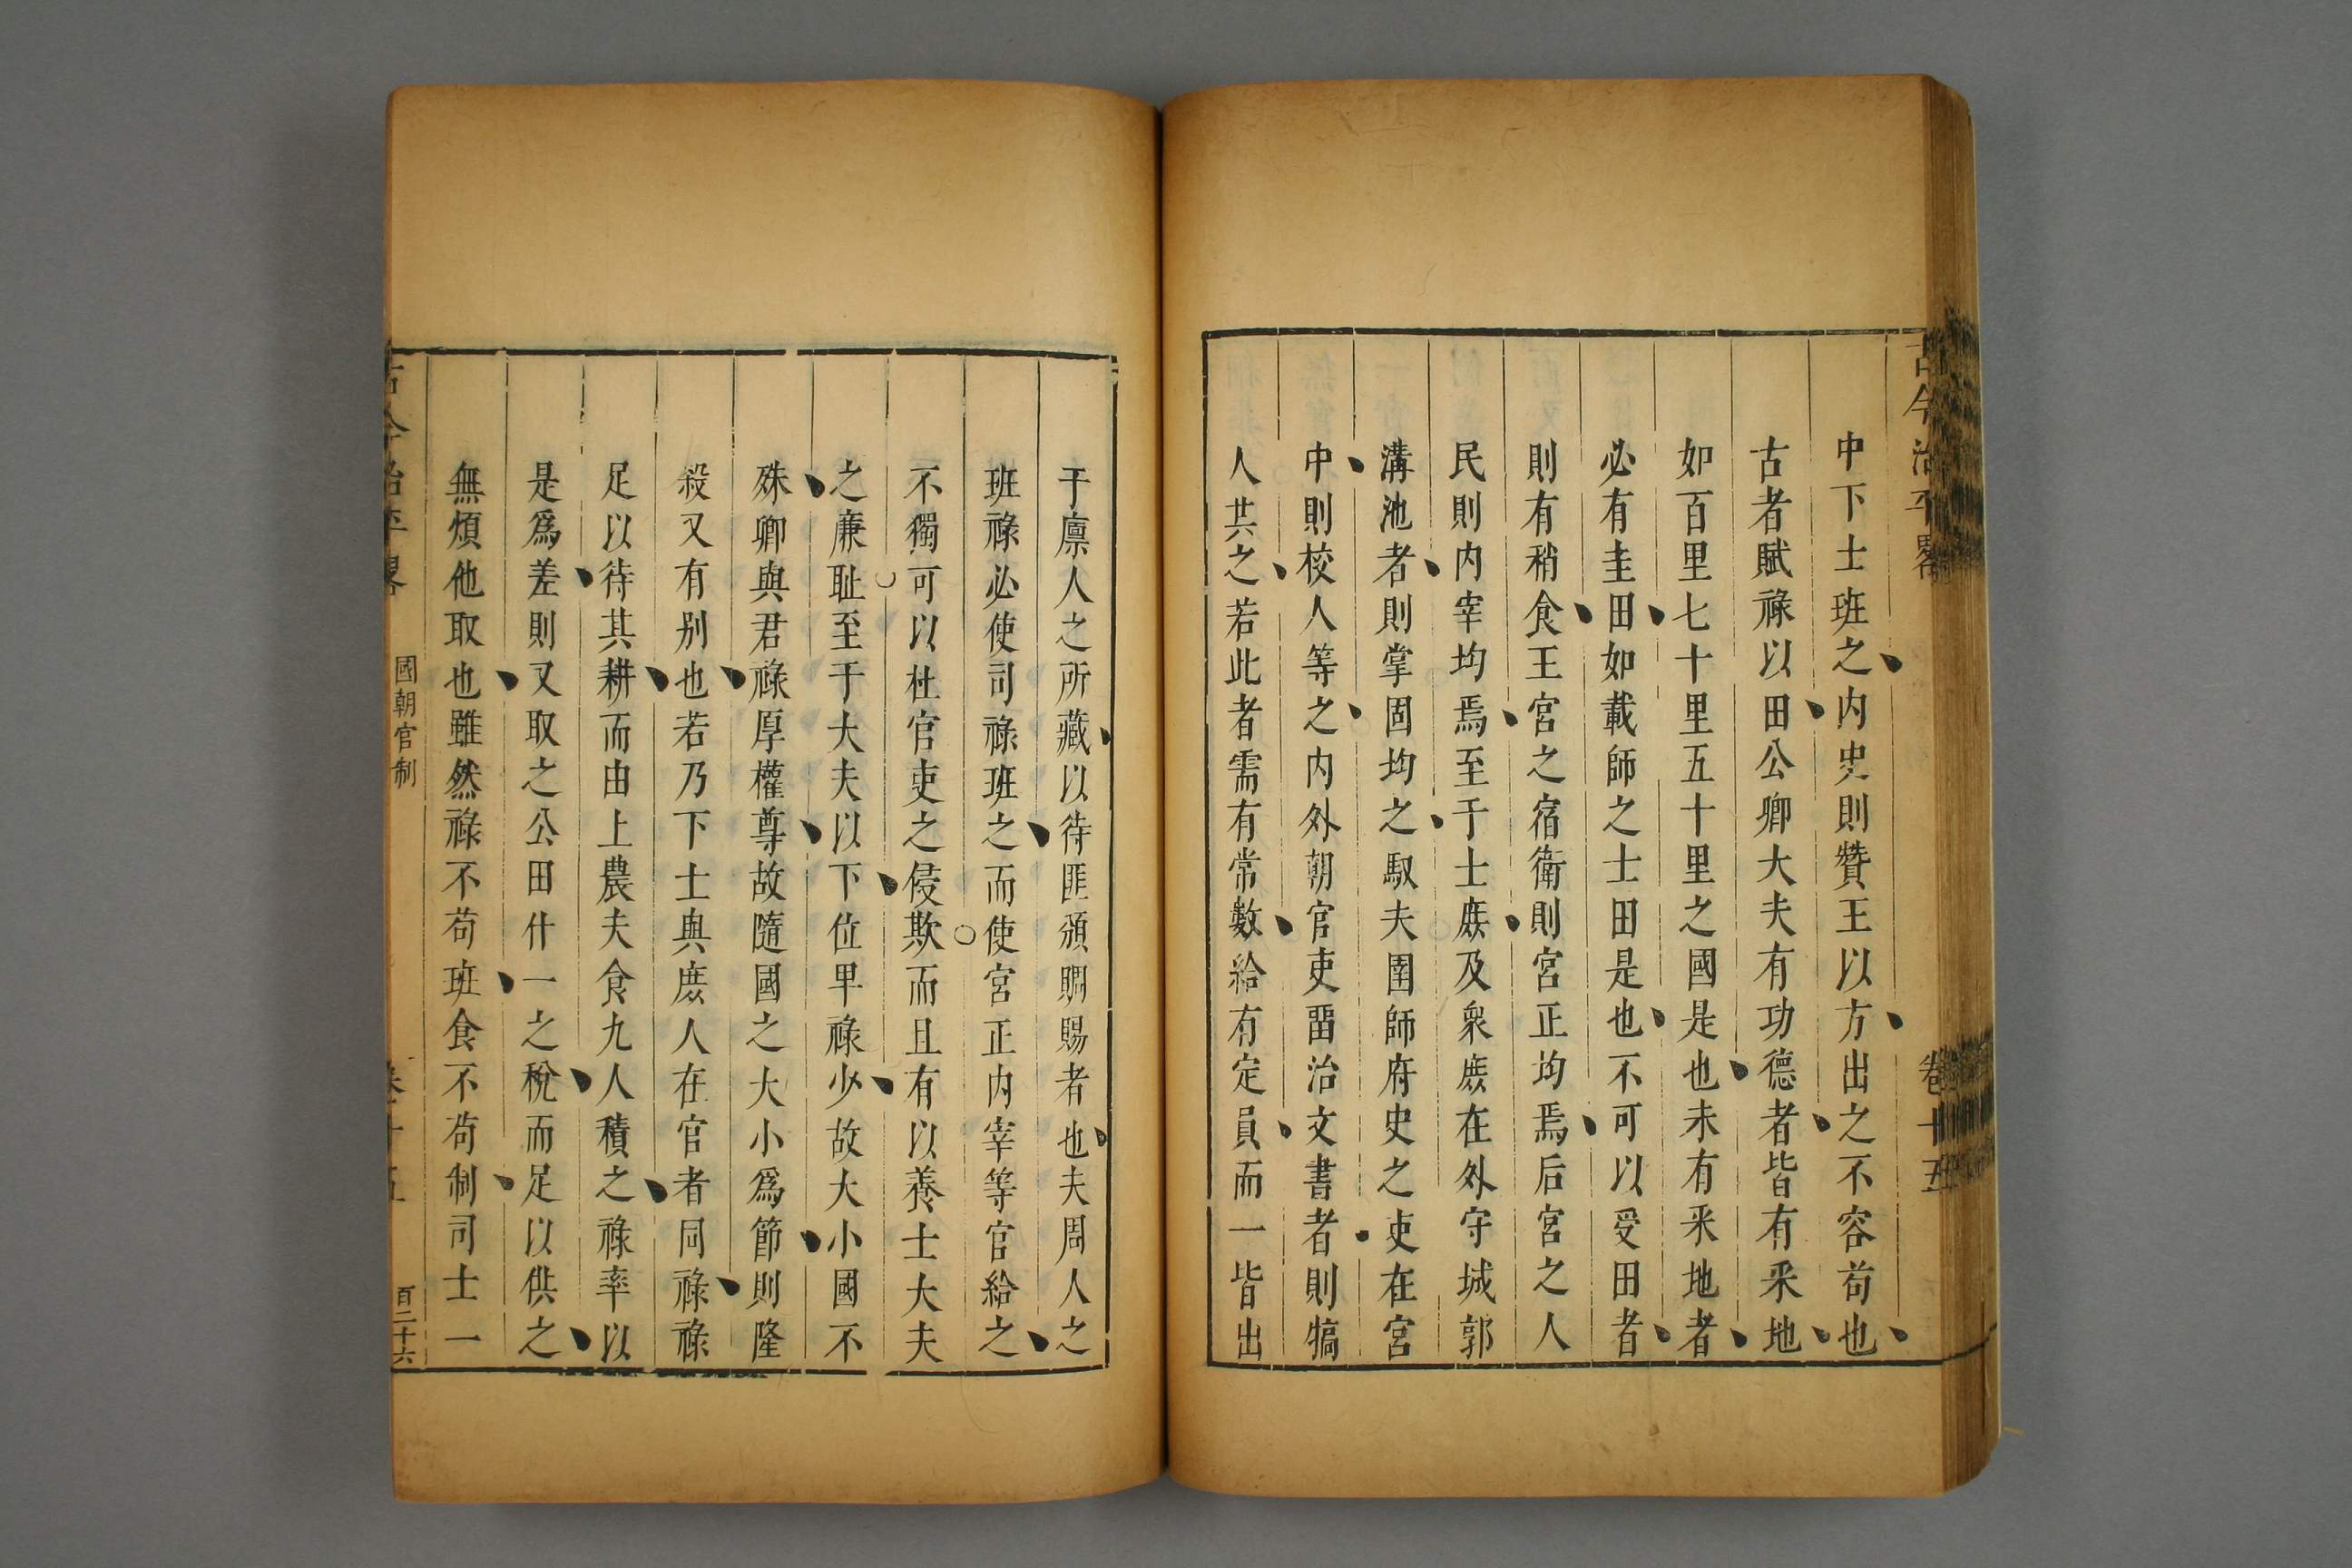 古今治平畧
卷十五
中下士班之内史則贊王以方出之不容苟也
古者賦祿以田公卿大夫有功德者皆有采地
如百里七十里五十里之國是也未有采地者
必有圭田如載師之士田是也不可以受田者
則有稍食王宮之宿衛則宮正均焉后宮之人
民則内宰均焉至于士庶及衆庶在外守城郭
溝池者則掌固均之馭夫圉師府史之吏在宮
中則校人等之内外朝官吏畱治文書者則犒
人共之若此者需有常數給有定員而一皆出
于廪人之所藏以待匪頒賙賜者也夫周人之
班祿必使司祿班之而使宮正内宰等官給之
不獨可以杜官吏之侵欺而且有以養士大夫
之廉耻至于大夫以下位卑祿少故大小國不
殊卿與君祿厚權尊故隨國之大小爲節則隆
殺又有别也若乃下士與庶人在官者同祿祿
足以待其耕而由上農夫食九人積之祿率以
是爲差則又取之公田什一之稅而足以供之
無煩他取也雖然祿不苟班食不苟制司士一
古今治平畧
國朝官制
卷十五
百二十六